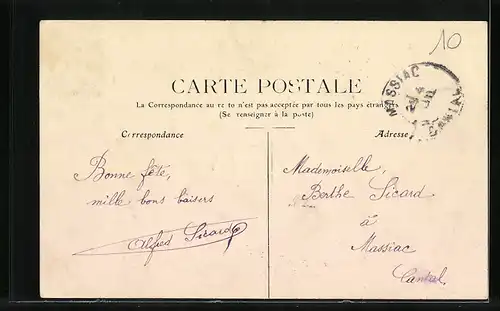 10
CARTE POSTALE
La Correspondance au recto n'est pas acceptée par tous les pays étrangers
(Se renseigner à la poste)
Correspondance
Adresse
MASSIAC
CANTAL
Bonne fête,
mille bons baisers
Alfred Sicard
Mademoiselle,
Berthe Sicard
à
Massiac
Cantal